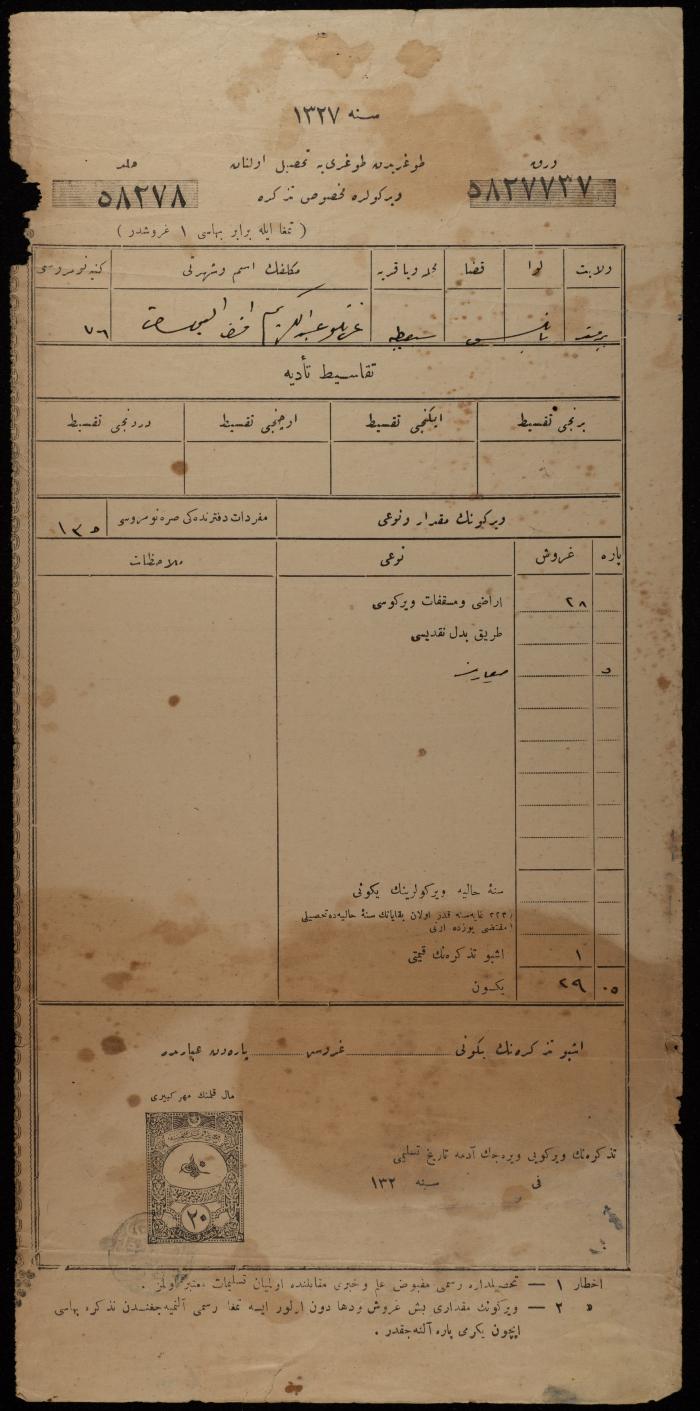 سنه ١٣٢٧
ورق
٥٨٢٧٧٣٧
طوغریدن طوغری یه تحصیل اولنان
ویرکولره مخصوص تذکره
جلد
٥٨٢٧٨
( تمغا ایله برابر بهاسی ١ غروشدر )
ولایت لوا قضا محله ویا قریه مکلفك اسم وشهرتی کنیه نومروسی
نابلس عبدالکریم ٧٦
تقاسیط تأدیه
برنجی تقسیط ایکنجی تقسیط اوچنجی تقسیط دردنجی تقسیط
ویرکونك مقدار ونوعی مفردات دفترنده کی صره نومروسی ١٣٥
پاره غروش نوعی ملاحظات
٢٨ اراضی ومسقفات ویرکوسی
طریق بدل نقدیسی
٥ معارف
سنۀ حالیه ویرکولرینك یکونی
غایه سنه قدر اولان بقایانك سنۀ حالیه ده تحصیلی
مقتضی یوزده اری
١ اشبو تذکره نك قیمتی
٠٥ ٢٩ یکون
اشبو تذکره نك یکونی غروش پاره دن عبارتدر
مال قلمنك مهر کبیری
٢٠
تذکره نك ویرکویی ویره جك آدمه تاریخ تسلیمی
فی سنه ١٣٢
اخطار ١ — تحصیلداره رسمی مقبوض علم وخبری مقابلنده اولمیان تسلیمات معتبر اولمز .
» ٢ — ویرکونك مقداری بش غروش ودها دون اولور ایسه تمغا رسمی آلنمیه جغندن تذکره بهاسی
ایچون یکرمی پاره آلنه جقدر .